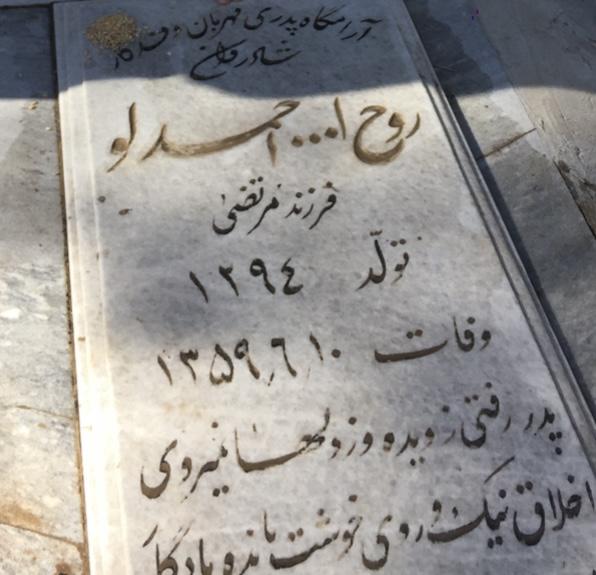 آرامگاه پدری مهربان و فداکار
شادروان
روح ا... احمدلو
فرزند مرتضی
تولّد ۱۲۹٤
وفات ۱۳۵۹٫٦٫۱۰
پدر رفتی ز دیده وز دلها نمیروی
اخلاق نیک و روی خوشت مانده یادگار